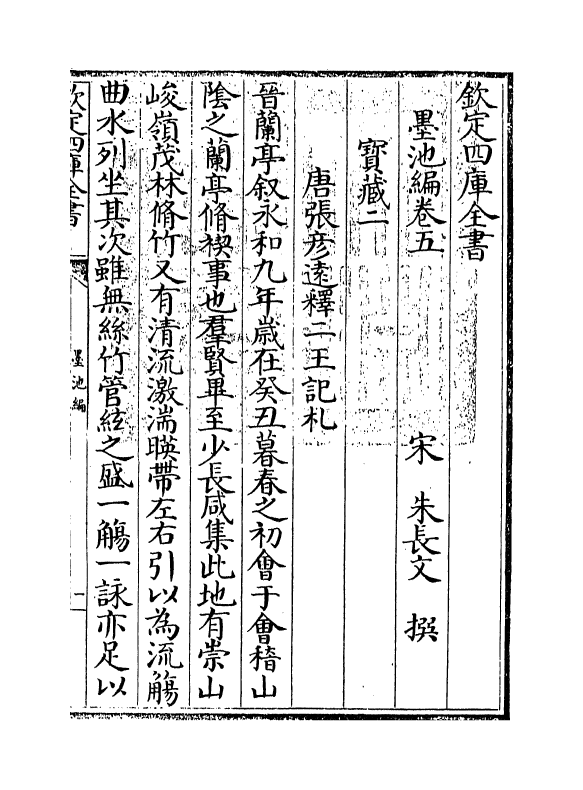 欽定四庫全書
墨池編卷五
宋 朱長文 撰
寳藏二
唐張彦遠釋二王記札
晉蘭亭叙永和九年嵗在癸丑暮春之初會于會稽山
陰之蘭亭脩禊事也羣賢畢至少長咸集此地有崇山
峻嶺茂林脩竹又有清流激湍暎帶左右引以為流觴
曲水列坐其次雖無絲竹管絃之盛一觴一詠亦足以
欽定四庫全書
墨池編
一